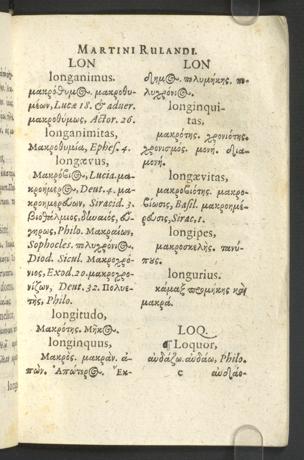 MARTINI RULANDI.
LON
longanimus.
μακρόθυμος. μακροθυ-
μέων, Lucæ 18. & aduer.
μακροθύμως, Actor. 26.
longanimitas,
Μακροθυμία, Ephes. 4.
longævus,
Μακρόβιος, Lucia. μα-
κροήμερος, Deut. 4. μα-
κροημερεύων, Siracid. 3.
γηρως, Philo. Μακραίων,
Sophocles. πολυχρόνιος.
Diod. Sicul. Μακροχρό-
νιος, Exod. 20. μακροχρο-
νίζων, Deut. 32. Πολυε-
τής, Philo.
longitudo,
Μακρότης. Μῆκος.
longinquus,
Μακρός. μακράν. ἀ-
πών. Ἀπώτερος. Ἐκ-
LON
δημος. πολυμήκης. πο-
λυχρόνιος.
longinqui-
tas,
μακρότης. χρονιότης.
χρονισμός. μονή. δια-
μονή.
longævitas,
μακροβιότης. μακρο-
βίωσις, Basil. μακροημέ-
ρευσις, Sirac. 1.
longipes,
μακροσκελής. τανύ-
πους.
longurius.
κάμαξ περιμήκης καὶ
μακρά.
LOQ.
¶ Loquor,
αὐδάζω. αὐδάω, Philo.
c